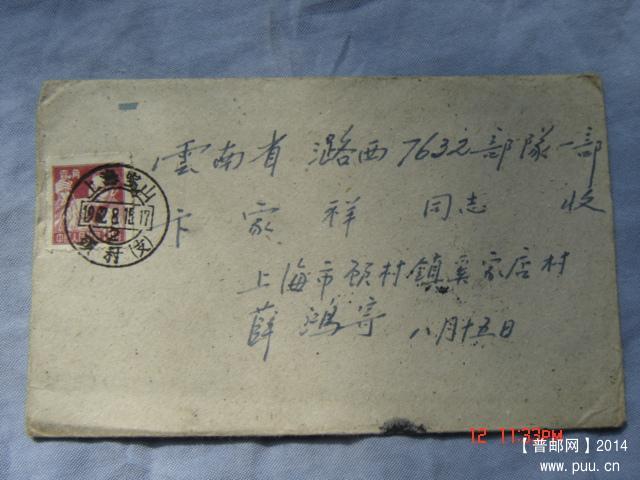 雲南省 潞西 7632部隊一部
卞家祥 同志 收
上海市顾村鎮奚家店村
薛鴻寄 八月十五日
上海宝山
1962.8.15.17
2
顾村(支)
壹角
12 11:33PM
【普邮网】2014
www.puu.cn